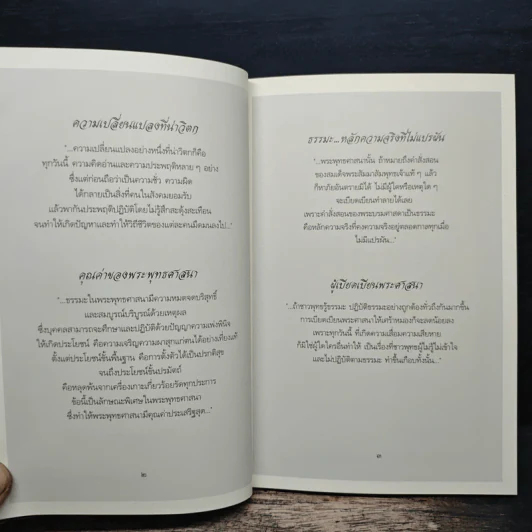 ความเปลี่ยนแปลงที่น่าวิตก
“...ความเปลี่ยนแปลงอย่างหนึ่งที่น่าวิตกก็คือ
ทุกวันนี้ ความคิดอ่านและความประพฤติหลาย ๆ อย่าง
ซึ่งแต่ก่อนถือว่าเป็นความชั่ว ความผิด
ได้กลายเป็นสิ่งที่คนในสังคมยอมรับ
แล้วพากันประพฤติปฏิบัติโดยไม่รู้สึกสะดุ้งสะเทือน
จนทำให้เกิดปัญหาและทำให้วิถีชีวิตของแต่ละคนมืดมนลงไป...”
คุณค่าของพระพุทธศาสนา
“...ธรรมะในพระพุทธศาสนามีความหมดจดบริสุทธิ์
และสมบูรณ์บริบูรณ์ด้วยเหตุผล
ซึ่งบุคคลสามารถจะศึกษาและปฏิบัติด้วยปัญญาความเพ่งพินิจ
ให้เกิดประโยชน์ คือความเจริญความผาสุกแก่ตนได้อย่างเที่ยงแท้
ตั้งแต่ประโยชน์ขั้นพื้นฐาน คือการตั้งตัวได้เป็นปรกติสุข
จนถึงประโยชน์ขั้นปรมัตถ์
คือหลุดพ้นจากเครื่องเกาะเกี่ยวร้อยรัดทุกประการ
ข้อนี้เป็นลักษณะพิเศษในพระพุทธศาสนา
ซึ่งทำให้พระพุทธศาสนามีคุณค่าประเสริฐสุด...”
๒
ธรรมะ...หลักความจริงที่ไม่แปรผัน
“...พระพุทธศาสนานั้น ถ้าหมายถึงคำสั่งสอน
ของสมเด็จพระสัมมาสัมพุทธเจ้าแท้ ๆ แล้ว
ก็หาภัยอันตรายมิได้ ไม่มีผู้ใดหรือเหตุใด ๆ
จะเบียดเบียนทำลายได้เลย
เพราะคำสั่งสอนของพระบรมศาสดาเป็นธรรมะ
คือหลักความจริงที่คงความจริงอยู่ตลอดกาลทุกเมื่อ
ไม่มีแปรผัน...”
ผู้เบียดเบียนพระศาสนา
“...ถ้าชาวพุทธรู้ธรรมะ ปฏิบัติธรรมะอย่างถูกต้องทั่วถึงกันมากขึ้น
การเบียดเบียนพระศาสนาให้เศร้าหมองก็จะลดน้อยลง
เพราะทุกวันนี้ ที่เกิดความเสื่อมความเสียหาย
ก็มิใช่ผู้ใดใครอื่นทำให้ เป็นเรื่องที่ชาวพุทธผู้ไม่รู้ไม่เข้าใจ
และไม่ปฏิบัติตามธรรมะ ทำขึ้นเกือบทั้งนั้น...”
๓